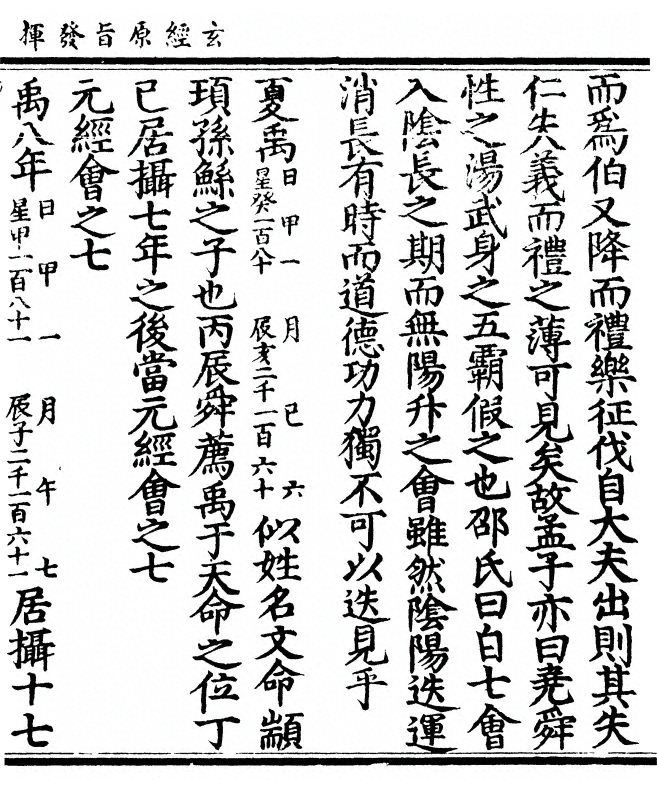 玄經原旨發揮
而爲伯又降而禮樂征伐自大夫出則其失
仁失義而禮之薄可見矣故孟子亦曰堯舜
性之湯武身之五霸假之也邵氏曰自七會
入陰長之期而無陽升之會雖然陰陽迭運
消長有時而道德功力獨不可以迭見乎
夏禹日甲一 月巳六 星癸一百八十 辰亥二千一百六十 似姓名文命顓
頊孫鯀之子也丙辰舜薦禹于天命之位丁
巳居攝七年之後當元經會之七
元經會之七
禹八年日甲一 月午七 星甲一百八十一 辰子二千一百六十一 居攝十七